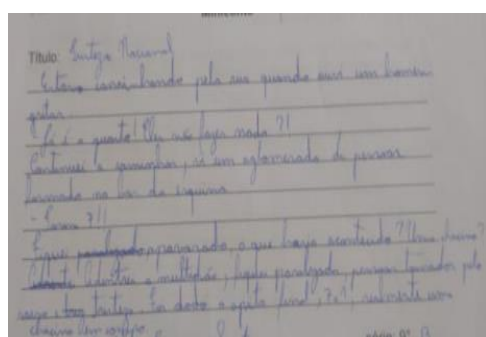 Título: Tristeza Nacional
Estava caminhando pela rua quando ouvi um homem
gritar:
- Já é o quarto! Eles não fazem nada ?!
Continuei a caminhar, vi um aglomerado de pessoas
formada no bar da esquina
- Porra ?!!
Fiquei apavorado, o que havia acontecido? Uma chacina?
a multidão, fiquei paralisado, pessoas tomadas pela
raiva e tristeza. Foi dado o apito final, 7x1, realmente uma
chacina sem corpo